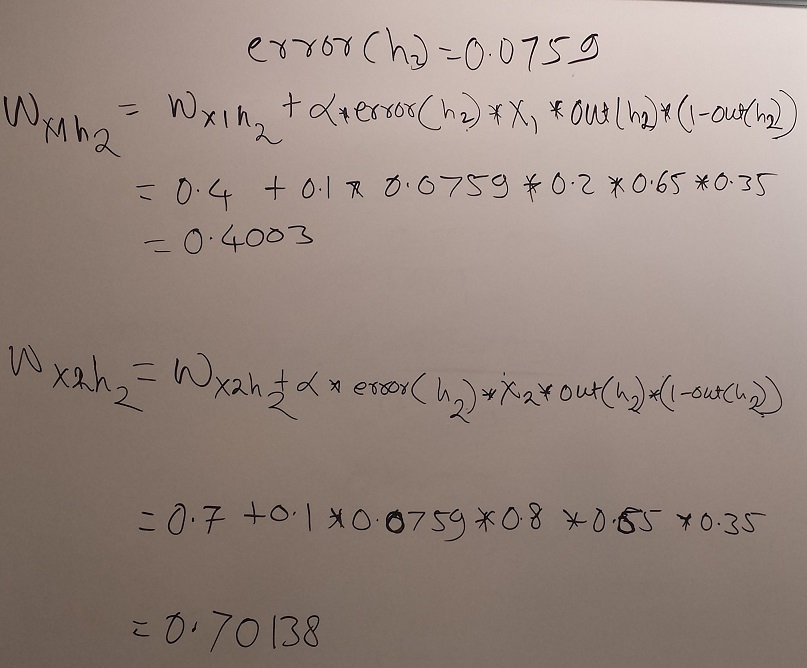 error(h₂) = 0.0759
Wx1h₂ = Wx1h₂ + α * error(h₂) * X₁ * out(h₂) * (1-out(h₂))
= 0.4 + 0.1 * 0.0759 * 0.2 * 0.65 * 0.35
= 0.4003
Wx2h₂ = Wx2h₂ + α * error(h₂) * X₂ * out(h₂) * (1-out(h₂))
= 0.7 + 0.1 * 0.0759 * 0.8 * 0.65 * 0.35
= 0.70138